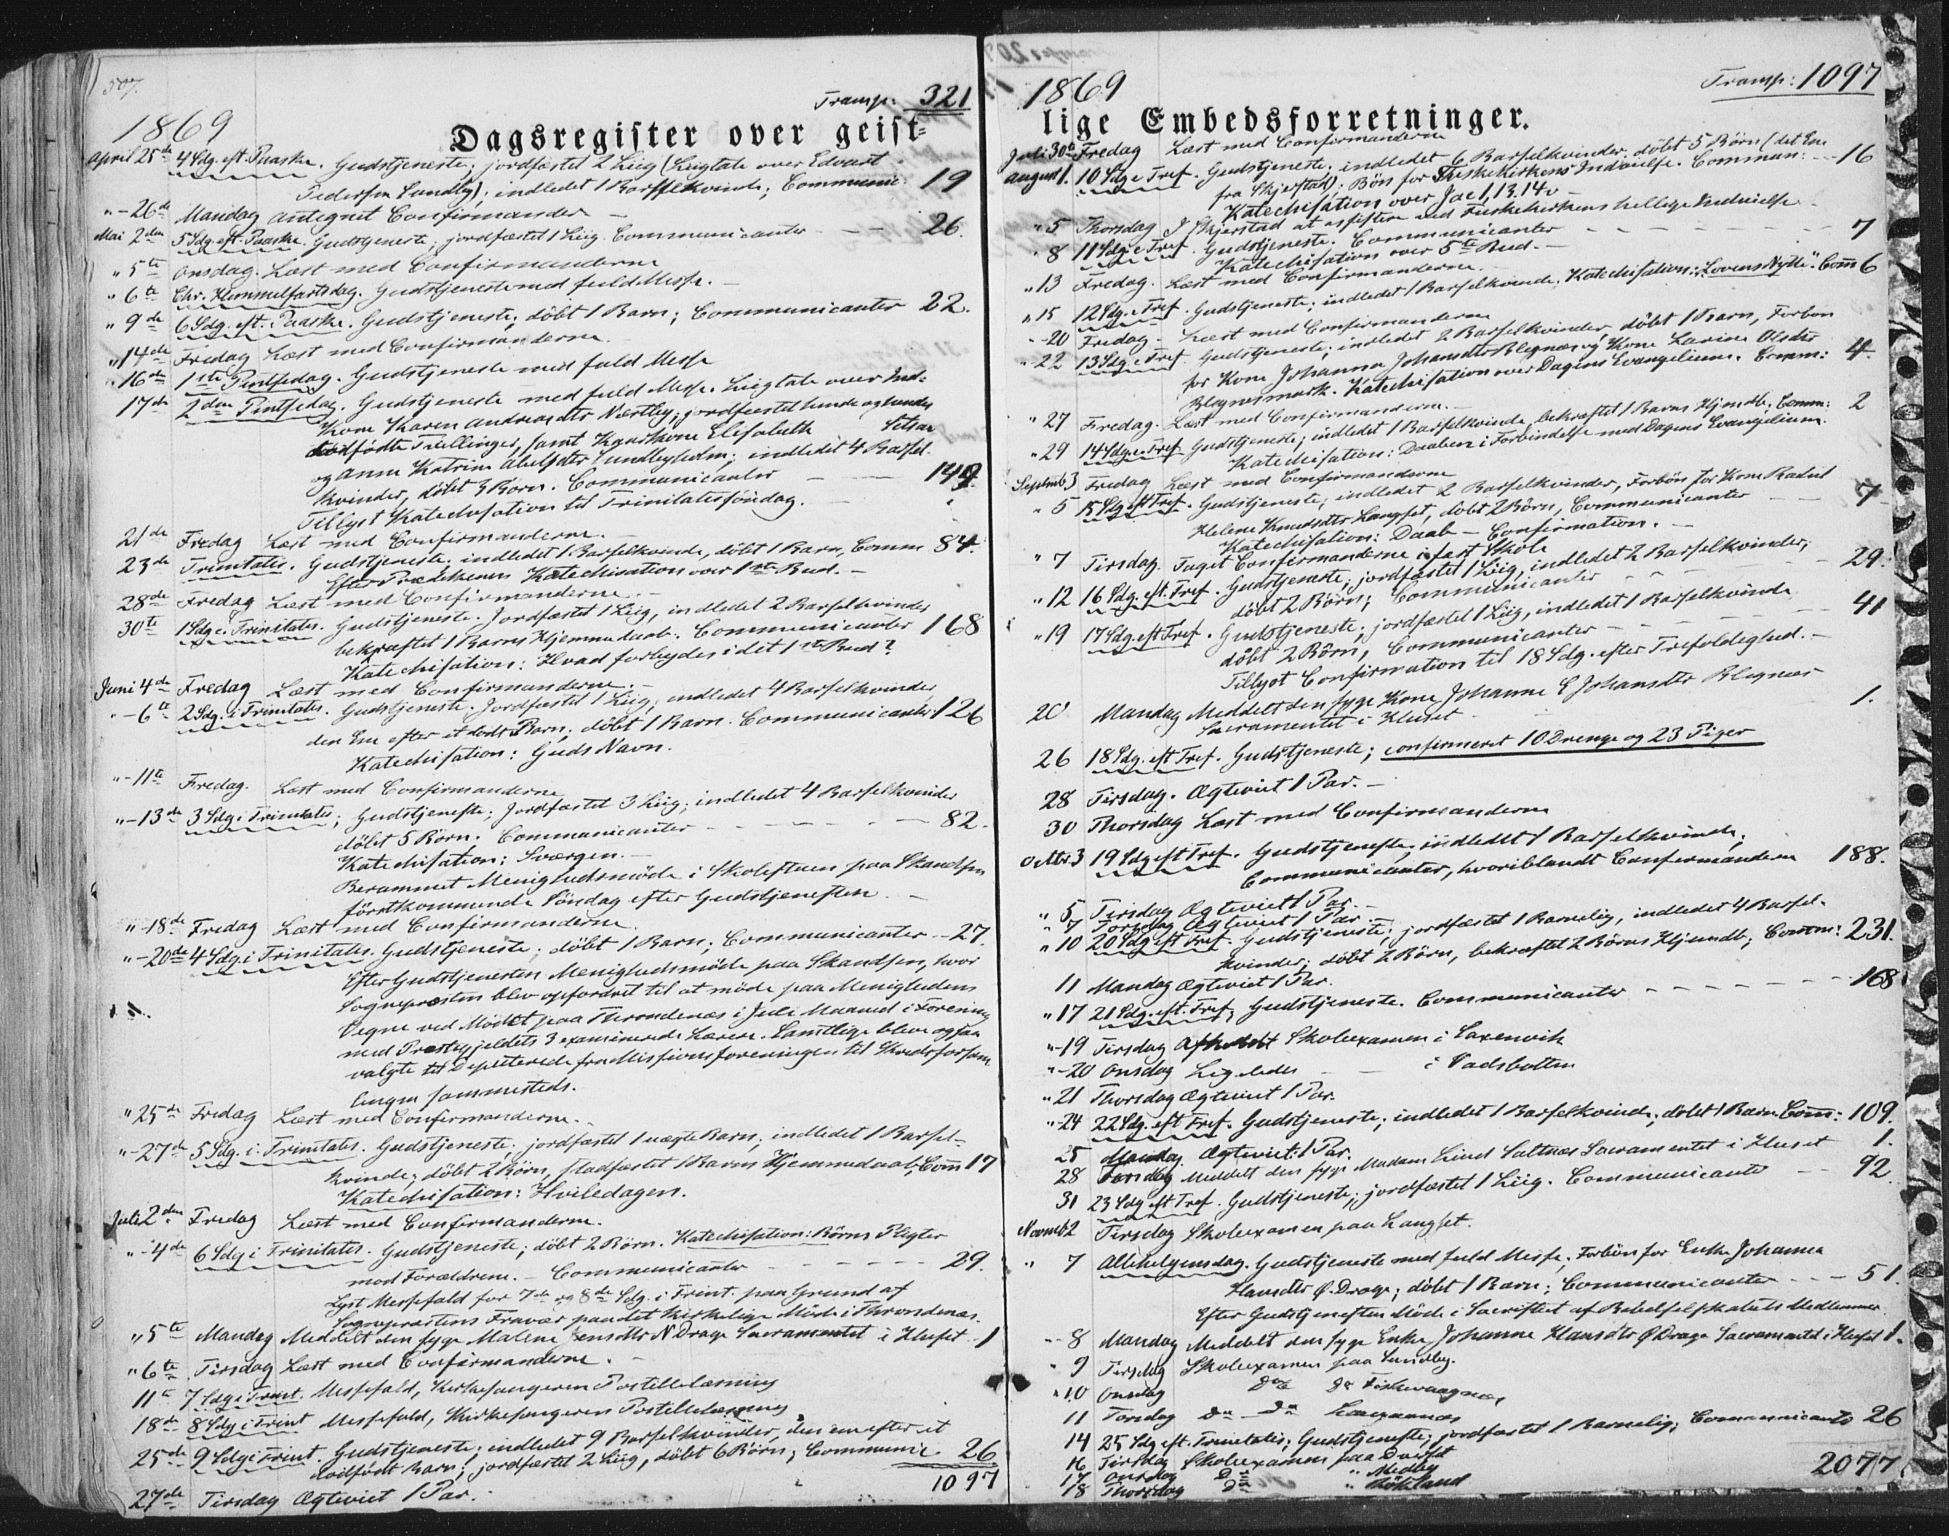 507.
Transp: 321
1869
Dagsregister over geist=
April 25de 4 Sdg. eft. Paaske. Gudstjeneste; jordfæstet 2 Liig (Liigtale over Edvart
Pedersen Sundby), indledet 1 Barselkvinde; Communic: 19
"-26de Mandag antegnet Confirmander -
Mai 2den 5 Sdg. eft. Paaske. Gudstjeneste; jordfæstet 1 Liig. Communicanter - - 26.
" 5te Onsdag. Læst med Confirmanderne
" 6te Chr. Himmelfartsdag. Gudstjeneste med fuld Messe. -
" 9de 6 Sdg. eft. Paaske. Gudstjeneste; döbt 1 Barn; Communicanter 22.
" 14de Fredag Læst med Confirmanderne.
" 16de 1ste Pintsedag. Gudstjeneste med fuld Messe
17de 2den Pintsedag. Gudstjeneste med fuld Messe. Liigtale over
Kone Karen Andreasdtr Næstby; jordfæstet hende og hendes
dödfödte Trillinger, samt Kone Elisabeth
og Anne Katrine Abelsdtr Sundbyholm; indledet 4 Barsel-
kvinder, döbt 3 Börn. Communicanter - - -
Tillyst Katechisation til Trinitatissöndag.
21de Fredag Læst med Confirmanderne. -
23de Trinitatis. Gudstjeneste, indledet 1 Barselkvinde, döbt 1 Barn, Comm 84.
Efter Prædikenen Katechisation over 1ste Bud. -
28de Fredag Læst med Confirmanderne. -
30te 1 Sdg. i Trinitatis. Gudstjeneste. Jordfæstet 1 Liig, indledet 2 Barselkvinder
bekræftet 1 Barns Hjemmedaab. Communicanter 168
Katechisation: Hvad forbydes i det 1ste Bud?
Juni 4de Fredag Læst med Confirmanderne. -
"-6te 2 Sdg. i Trinitatis. Gudstjeneste. Jordfæstet 1 Liig, indledet 4 Barselkvinder,
den Ene efter et dødt Barn; döbt 1 Barn. Communicanter 126
Katechisation: Guds Navn.
"-11te Fredag. Læst med Confirmanderne
"-13de 3 Sdg. i Trinitatis; Gudstjeneste; Jordfæstet 3 Liig; indledet 4 Barselkvinder
döbt 5 Börn. Communicanter - - - - 82.
Katechisation; Sværgen. -
Berammet Menighedsmöde i Skolestuen paa Skandsen
förstkommende Söndag efter Gudstjenesten -
"-18de Fredag Læst med Confirmanderne.
"-20de 4 Sdg. i Trinitatis. Gudstjeneste; döbt 1 Barn; Communicanter - 27.
Efter Gudstjenesten Menighedsmöde paa Skandsen, hvor
Sognepræsten blev opfordret til at möde paa Menighedens
Vegne ved Mödet paa Throndenæs i Juli Maaned i Forening
med Præstegjeldets 3 examinerede Lærere. Samtlige bleve ogsaa
valgte til Deputerede fra Missionsforeningen til Kredsforsam
lingen sammesteds.
"25de Fredag Læst med Confirmanderne.
"-27de 5 Sdg. i Trinitatis. Gudstjeneste; jordfæstet 1 uægte Barn; indledet 1 Barsel-
kvinde; döbt 2 Börn, stadfæstet 1 Barns Hjemmedaab, Com 17
Katechisation: Hviledagen.
Juli 2den Fredag Læst med Confirmanderne.
"-4de 6 Sdg i Trinitatis. Gudstjeneste; döbt 2 Börn. Katechisation: Börns Pligter
mod Forældrene. - Communicanter - - - - - 29.
Lyst Messefald for 7de og 8de Sdg. i Trint. paa Grund af
Sognepræstens Fravær paa det kirkelige Möde i Throndenæs.
" 5te Mandag Meddelt den syge Malene Jensdtr N. Drage Sacramentet i Huset 1
"6te Tirsdag Læst med Confirmanderne. -
11te 7 Sdg. i Trint. Messefald, Kirkesangeren Postillelæsning
18de 8 Sdg i Trint Messefald, Kirkesangeren Postillelæsning
25de 9 Sdg i Trint. Gudstjeneste; indledet 9 Barselkvinder, den ene efter et
dödfödt Barn; jordfæstet 2 Liig, döbt 6 Börn; Communic. 26
1097
27de Tirsdag Ægteviet 1 Par.
1869
Transp: 1097
lige Embedsforretninger.
Juli 30te Fredag Læst med Confirmanderne
August 1. 10 Sdg e Tref. Gudstjeneste; indledet 6 Barselkvinder, döbt 5 Börn (det Ene
fra Skjerstad); Bön for Fuskekirkens Indvielse. Commun: - 16
Katechisation over Jac 1, 13. 14 -
" 5 Thorsdag I Skjerstad at assistere ved Fuskekirkens hellige Indvielse -
" 8 11 Sdg. e Tref. Gudstjeneste. Communicanter - - - - - 7
Katechisation over 5te Bud. -
" 13 Fredag. Læst med Confirmanderne.
" 15 12 Sdg. e Tref. Gudstjeneste; indledet 1 Barselkvinde. Katechisation: "Lovens Nytte". Com 6
- 20 Fredag - Læst med Confirmanderne
- 22 13 Sdg. e Tref. Gudstjeneste; indledet 2 Barselkvinder, döbt 1 Barn, Forbön
for Kone Johanna Johansdtr Blegnæs og Kone Lavine Olsdtr
Blegnesmark. Katechisation over Dagens Evangelium. Comm: 4
" 27 Fredag. Læst med Confirmanderne. -
" 29 14 Sdg. e Tref. Gudstjeneste; indledet 1 Barselkvinde, bekræftet 1 Barns Hjmdb. Comm: 2
Katechisation: Daaben i Forbindelse med Dagens Evangelium.
Septemb. 3 Fredag Læst med Confirmanderne
" 5 15 Sdg. eft Tref. Gudstjeneste; indledet 2 Barselkvinder, Forbön for Kone Rakel
Helene Knudsdtr Langset, döbt 2 Börn, Communicanter - - 7
Katechisation: Daab - Confirmation. -
" 7 Tirsdag. Taget Confirmanderne i fast Skole
" 12 16 Sdg. eft Tref. Gudstjeneste; jordfæstet 1 Liig, indledet 2 Barselkvinder;
döbt 2 Börn; Communicanter - - - - 29.
" 19 17 Sdg. eft Tref. Gudstjeneste; jordfæstet 1 Liig, indledet 1 Barselkvinde
döbt 2 Börn, Communicanter - - - - 41
Tillyst Confirmation til 18 Sdg. efter Trefoldighed. -
20 Mandag Meddelt den syge Kone Johanne E Johansdtr Blegnæs
Sacramentet i Huset - - 1.
26 18 Sdg. eft Tref. Gudstjeneste; confirmeret 10 Drenge og 23 Piger
28 Tirsdag. Ægteviet 1 Par. -
30 Thorsdag Læst med Confirmanderne
Octbr 3 19 Sdg eft Tref. Gudstjeneste; indledet 1 Barselkvinde;
Communicanter, hvoriblandt Confirmanderne 188.
" 5 Tirsdag Ægteviet 1 Par. -
" 7 Torsdag Ægteviet 1 Par -
" 10 20 Sdg eft Tref. Gudstjeneste; jordfæstet 1 Barnelig, indledet 4 Barsel-
kvinder; döbt 2 Börn, bekræftet 2 Börns Hjemdb; Comm: 231.
11 Mandag Ægteviet 1 Par.
" 17 21 Sdg. eft. Tref. Gudstjeneste. Communicanter - - - - - 168
"-19 Tirsdag Afholdt Skoleexamen i Saxenvik
"-20 Onsdag Ligeledes - - i Vadsbotten
"21 Thorsdag Ægteviet 1 Par.
"-24 22 Sdg. eft Tref. Gudstjeneste; indledet 1 Barselkvinde; döbt 1 Barn. Com: 109.
25 Mandag. Ægteviet 1 Par.
28 Torsdag Meddelt den syge Madam Lind Saltnæs Sacramentet i Huset 1.
31 23 Sdg eft Tref. Gudstjeneste; jordfæstet 1 Liig. Communicanter - 92
Novemb 2 Tirsdag Skoleexamen paa Langset.
" 7 Allehelgensdag. Gudstjeneste med fuld Messe; Forbön for Enke Johanna
Hansdtr Ø. Drage; döbt 1 Barn; Communicanter - - - 51.
Efter Gudstjenesten Möde i Sacristiet af Bibelselskabets Medlemmer
-- 8 Mandag Meddelt den syge Enke Johanne Hansdtr Ø Drage Sacramentet i Huset 1.
" 9 Tirsdag Skoleexamen paa Sundby.
" 10 Onsdag Do Do Fiskevaagnæs
11 Torsdag Do - Do
14 25 Sdg eft. Trinitatis; Gudstjeneste; jordfæstet 1 Barnelig; Communicanter 26
16 Tirsdag Skoleexamen paa
17 Onsdag Do " Medby
18 Thorsdag Do "
2077